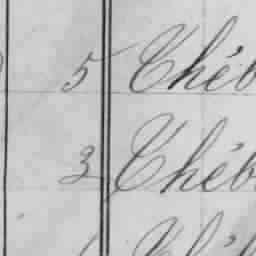 5 Théb
3 Théb